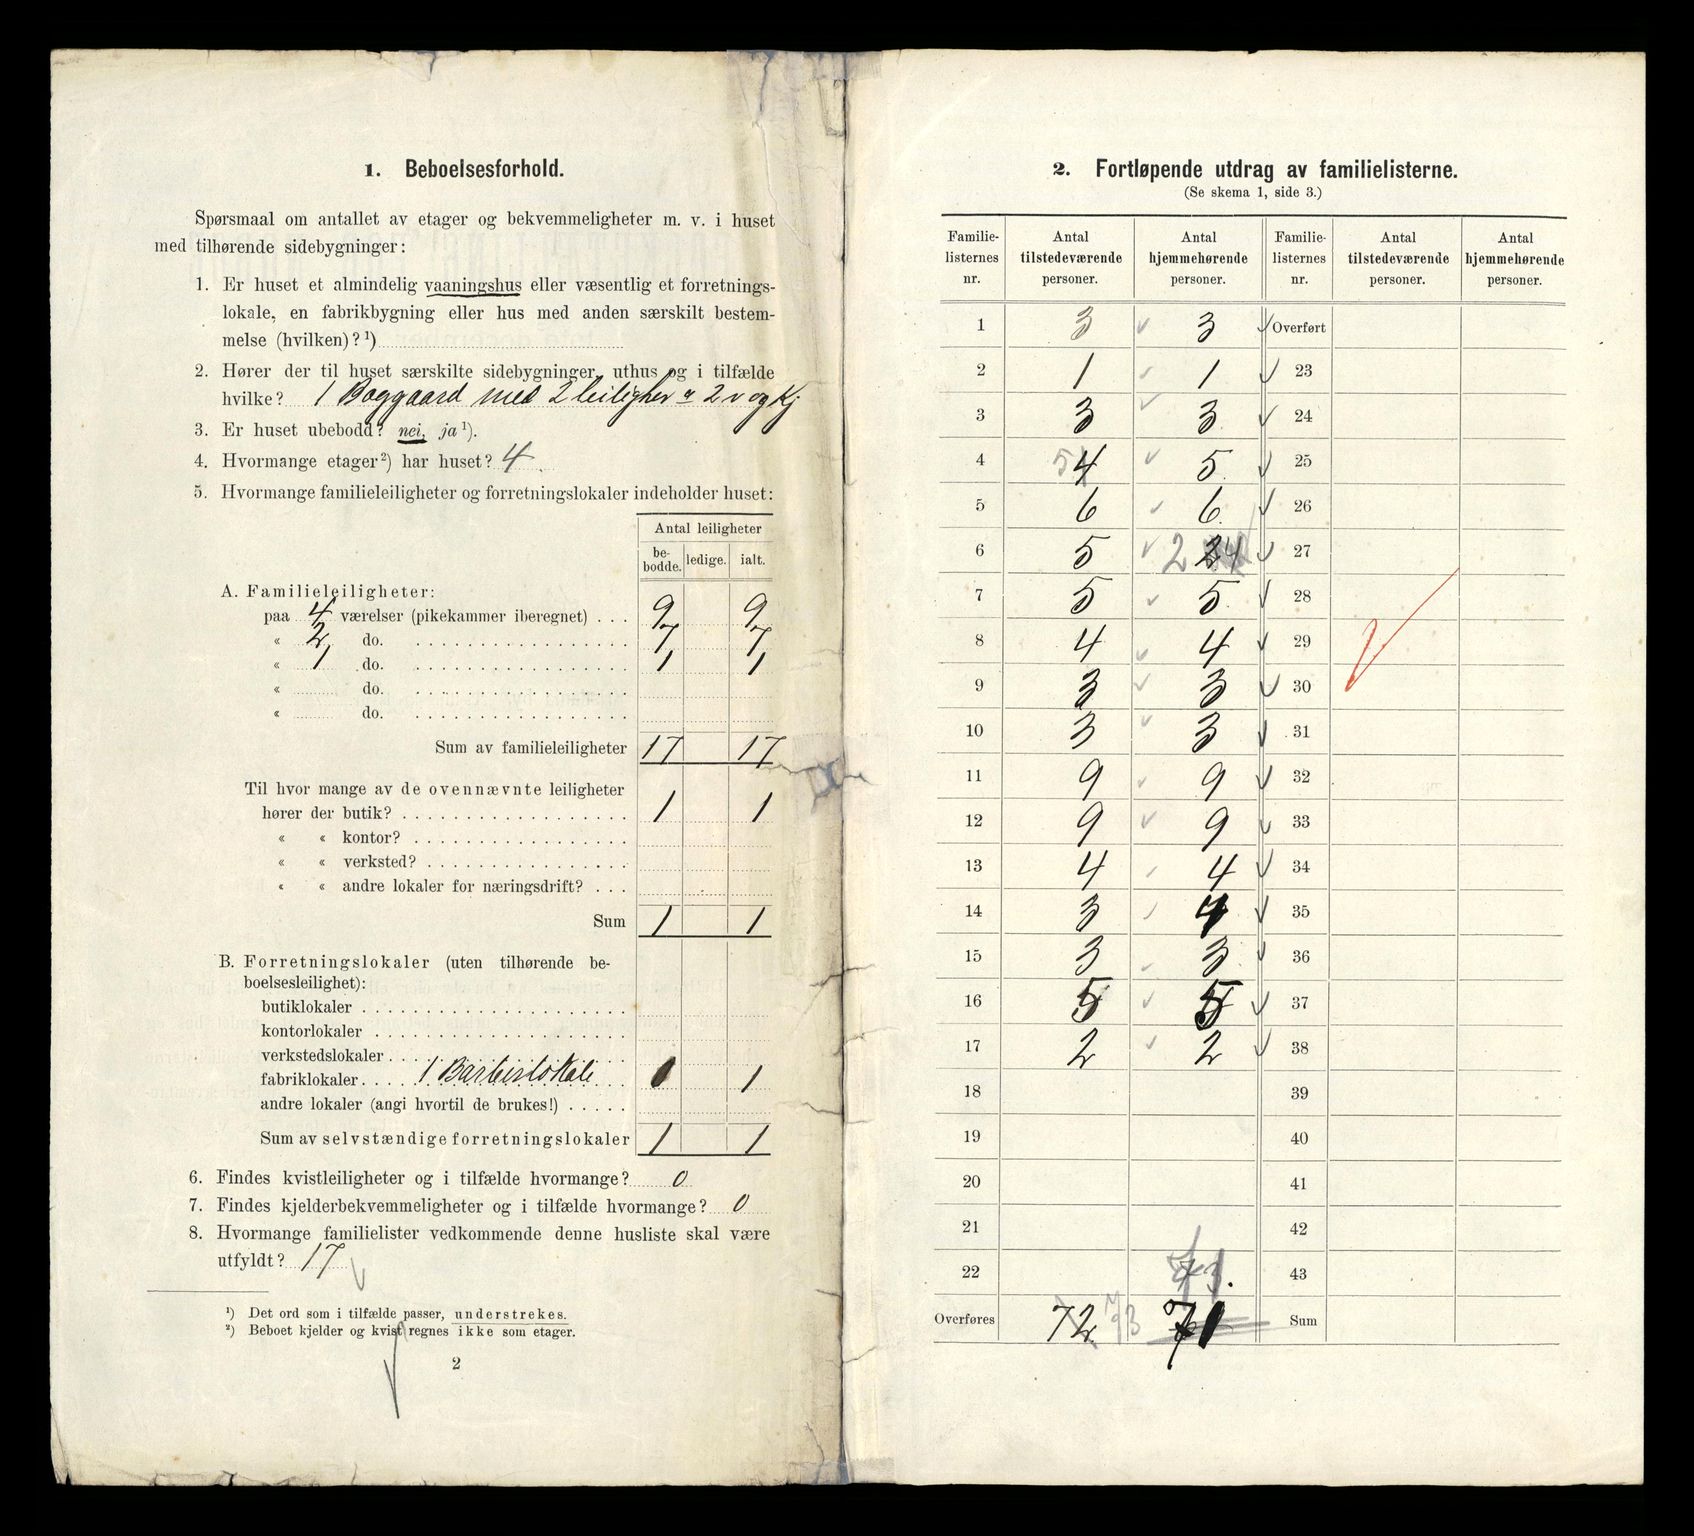 1. Beboelsesforhold.
Spørsmaal om antallet av etager og bekvemmeligheter m. v. i huset
med tilhørende sidebygninger:
1. Er huset et almindelig vaaningshus eller væsentlig et forretnings-
lokale, en fabrikbygning eller hus med anden særskilt bestem-
melse (hvilken)? ¹)
2. Hører der til huset særskilte sidebygninger, uthus og i tilfælde
hvilke? 1 Baggaard med 2 leiligher a 2 v og Kj
3. Er huset ubebodd? nei, ja ¹).
4. Hvormange etager ²) har huset? 4
5. Hvormange familieleiligheter og forretningslokaler indeholder huset:
Antal leiligheter
be-bodde. ledige. ialt.
A. Familieleiligheter:
paa 4 værelser (pikekammer iberegnet) . . . 9 9
« 2 do. 7 7
« 1 do. 1 1
« do.
« do.
Sum av familieleiligheter 17 17
Til hvor mange av de ovennævnte leiligheter
hører der butik? 1 1
« « kontor?
« « verksted?
« « andre lokaler for næringsdrift?
Sum 1 1
B. Forretningslokaler (uten tilhørende be-
boelsesleilighet):
butiklokaler
kontorlokaler
verkstedslokaler
fabriklokaler 1 Barberlokale 1
andre lokaler (angi hvortil de brukes!)
Sum av selvstændige forretningslokaler 1 1
6. Findes kvistleiligheter og i tilfælde hvormange? 0
7. Findes kjelderbekvemmeligheter og i tilfælde hvormange? 0
8. Hvormange familielister vedkommende denne husliste skal være
utfyldt? 17
¹) Det ord som i tilfælde passer, understrekes.
²) Beboet kjelder og kvist regnes ikke som etager.
2
2. Fortløpende utdrag av familielisterne.
(Se skema 1, side 3.)
Familie-listernes nr. Antal tilstedeværende personer. Antal hjemmehørende personer. Familie-listernes nr. Antal tilstedeværende personer. Antal hjemmehørende personer.
1 3 3 Overført
2 1 1 23
3 3 3 24
4 5 4 5 25
5 6 6 26
6 5 2 4 27
7 5 5 28
8 4 4 29
9 3 3 30
10 3 3 31
11 9 9 32
12 9 9 33
13 4 4 34
14 3 4 35
15 3 3 36
16 5 5 37
17 2 2 38
18 39
19 40
20 41
21 42
22 43
Overføres 72 73 71 Sum